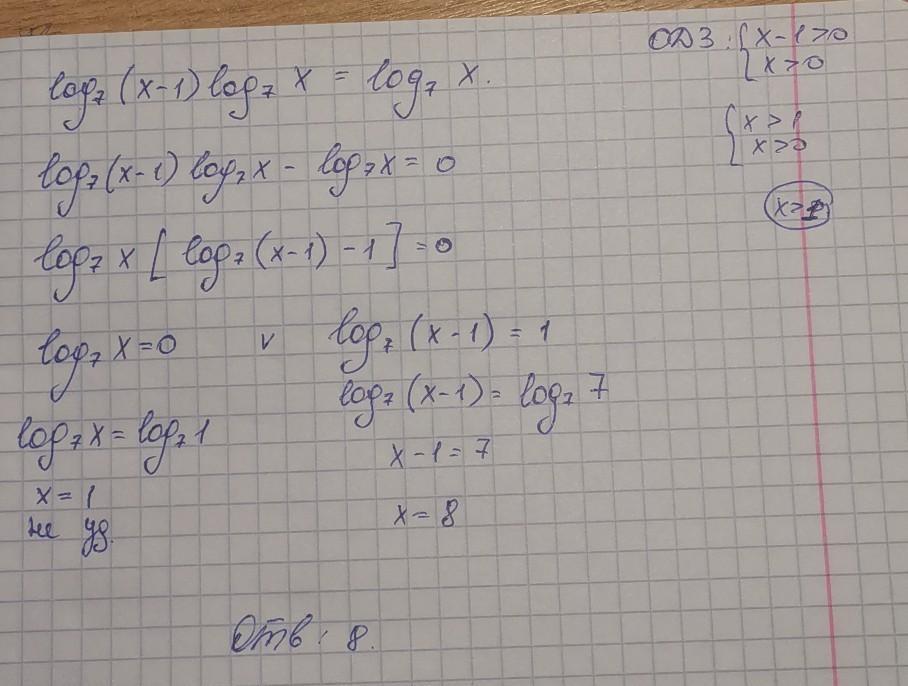 log₇ (x-1) log₇ x = log₇ x.
ОДЗ: { x-1>0
x>0
{ x>1
x>0
x>1
log₇(x-1) log₇x - log₇x = 0
log₇ x [ log₇ (x-1) -1 ] = 0
log₇ x=0 v log₇ (x-1) = 1
log₇ (x-1) = log₇ 7
log₇ x = log₇ 1
x-1=7
x = 1
x= 8
не уд.
Отв: 8.